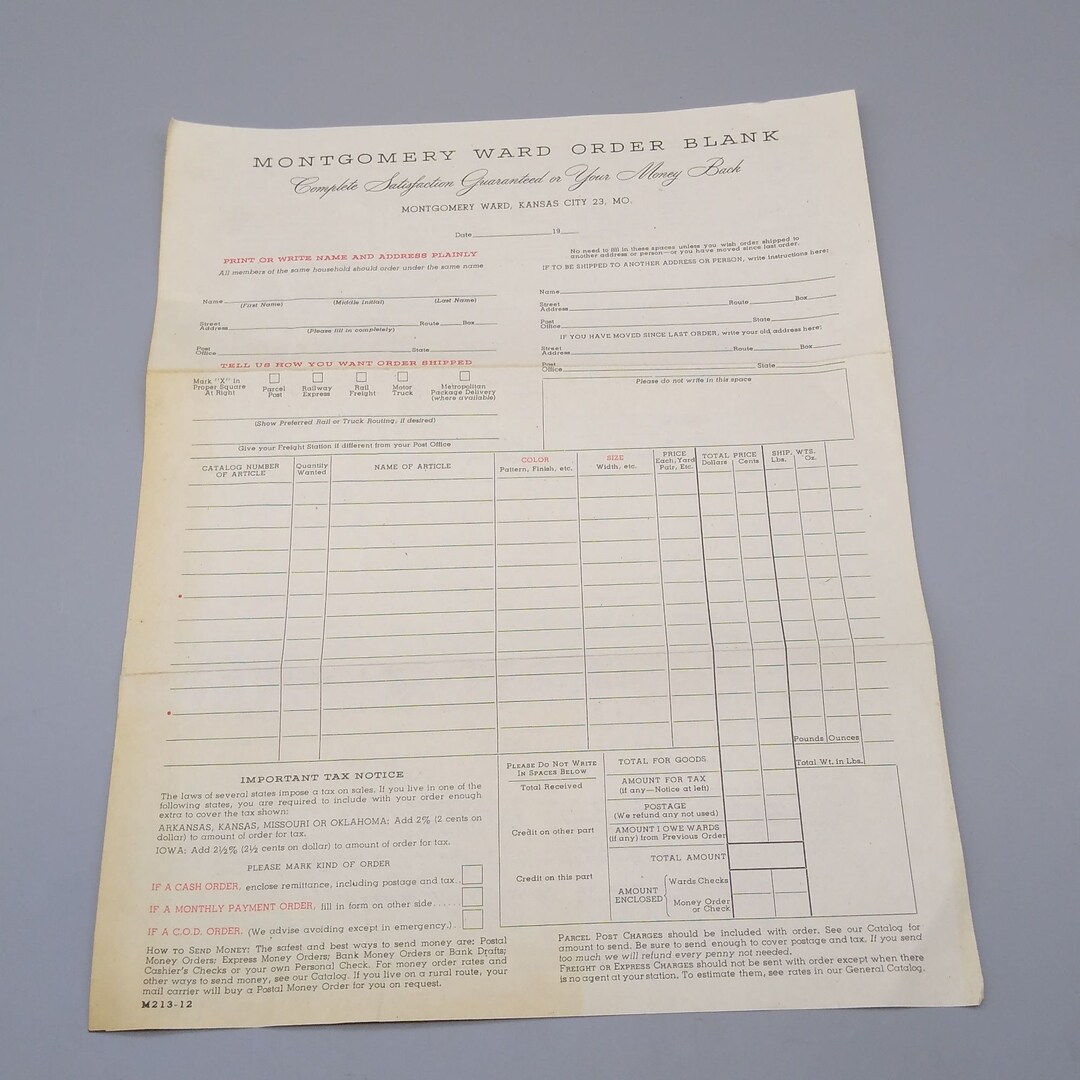 MONTGOMERY WARD ORDER BLANK
Complete Satisfaction Guaranteed or Your Money Back
MONTGOMERY WARD, KANSAS CITY 23, MO.
Date 19
PRINT OR WRITE NAME AND ADDRESS PLAINLY
All members of the same household should order under the same name
Name
(First Name) (Middle Initial) (Last Name)
Street
Address Route Box
(Please fill in completely)
Post
Office State
No need to fill in these spaces unless you wish order shipped to
another address or person—or you have moved since last order.
IF TO BE SHIPPED TO ANOTHER ADDRESS OR PERSON, write instructions here:
Name
Street
Address Route Box
Post
Office State
IF YOU HAVE MOVED SINCE LAST ORDER, write your old address here:
Street
Address Route Box
Post
Office State
TELL US HOW YOU WANT ORDER SHIPPED
Mark "X" in
Proper Square
At Right
Parcel
Post
Railway
Express
Rail
Freight
Motor
Truck
Metropolitan
Package Delivery
(where available)
(Show Preferred Rail or Truck Routing, if desired)
Give your Freight Station if different from your Post Office
Please do not write in this space
CATALOG NUMBER
OF ARTICLE
Quantity
Wanted
NAME OF ARTICLE
COLOR
Pattern, Finish, etc.
SIZE
Width, etc.
PRICE
Each, Yard
Pair, Etc.
TOTAL PRICE
Dollars Cents
SHIP. WTS.
Lbs. Oz.
Pounds Ounces
Total Wt. in Lbs.
IMPORTANT TAX NOTICE
The laws of several states impose a tax on sales. If you live in one of the
following states, you are required to include with your order enough
extra to cover the tax shown:
ARKANSAS, KANSAS, MISSOURI OR OKLAHOMA: Add 2% (2 cents on
dollar) to amount of order for tax.
IOWA: Add 2½% (2½ cents on dollar) to amount of order for tax.
PLEASE MARK KIND OF ORDER
IF A CASH ORDER, enclose remittance, including postage and tax..
IF A MONTHLY PAYMENT ORDER, fill in form on other side......
IF A C.O.D. ORDER. (We advise avoiding except in emergency.)..
PLEASE DO NOT WRITE
IN SPACES BELOW
Total Received
Credit on other part
Credit on this part
TOTAL FOR GOODS
AMOUNT FOR TAX
(if any—Notice at left)
POSTAGE
(We refund any not used)
AMOUNT I OWE WARDS
(if any) from Previous Order
TOTAL AMOUNT
AMOUNT
ENCLOSED
Wards Checks
Money Order
or Check
HOW TO SEND MONEY: The safest and best ways to send money are: Postal
Money Orders; Express Money Orders; Bank Money Orders or Bank Drafts;
Cashier's Checks or your own Personal Check. For money order rates and
other ways to send money, see our Catalog. If you live on a rural route, your
mail carrier will buy a Postal Money Order for you on request.
M213-12
PARCEL POST CHARGES should be included with order. See our Catalog for
amount to send. Be sure to send enough to cover postage and tax. If you send
too much we will refund every penny not needed.
FREIGHT OR EXPRESS CHARGES should not be sent with order except when there
is no agent at your station. To estimate them, see rates in our General Catalog.